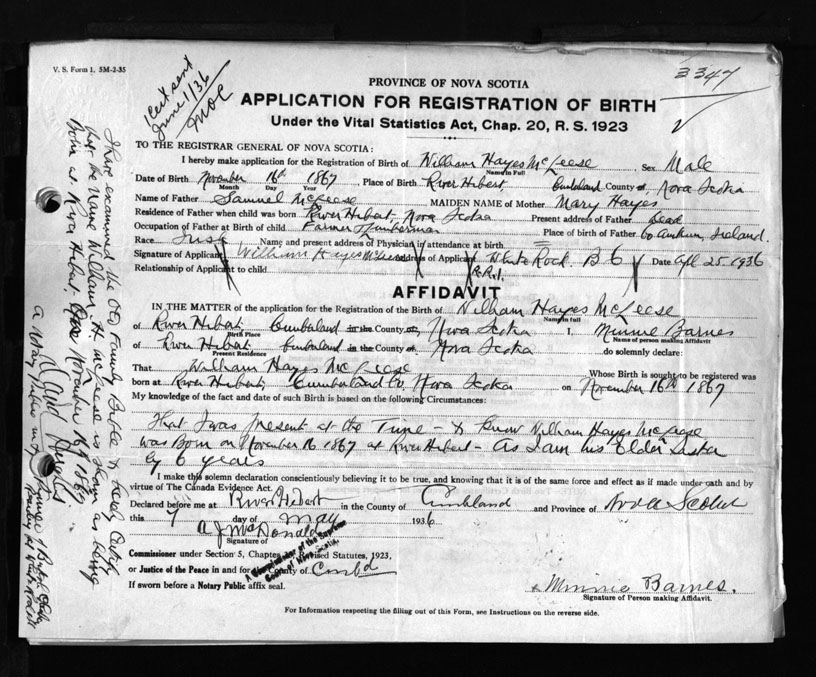 V. S. Form 1. 5M-2-35
Cert sent
June 1/36
MOC
3347
PROVINCE OF NOVA SCOTIA
APPLICATION FOR REGISTRATION OF BIRTH
Under the Vital Statistics Act, Chap. 20, R. S. 1923
TO THE REGISTRAR GENERAL OF NOVA SCOTIA:
I hereby make application for the Registration of Birth of William Hayes McLeese Sex Male
Name in Full
Date of Birth November 16th 1867, Place of Birth River Hebert Cumberland County of, Nova Scotia
Month Day Year
Name of Father Samuel McLeese MAIDEN NAME of Mother Mary Hayes
Residence of Father when child was born River Hebert, Nova Scotia Present address of Father Dead
Occupation of Father at Birth of child Farmer & Lumberman Place of birth of Father Co Antrim, Ireland.
Race Irish Name and present address of Physician in attendance at birth
Signature of Applicant William Hayes McLeese Address of Applicant White Rock. B C Date Apl 25 1936
Relationship of Applicant to child R.R.1.
AFFIDAVIT
IN THE MATTER of the application for the Registration of the Birth of William Hayes McLeese
Name in full
of River Hebert, Cumberland in the County of, Nova Scotia I, Minnie Barnes
Birth Place Name of person making Affidavit
of River Hebert, Cumberland in the County of Nova Scotia do solemnly declare:
Present Residence
That William Hayes McLeese Whose Birth is sought to be registered was
born at River Hebert, Cumberland Co, Nova Scotia on November 16th 1867
My knowledge of the fact and date of such Birth is based on the following Circumstances:
That I was present at the Time - & Know William Hayes McLeese
was Born on November 16 1867 at River Hebert - As I am his Elder Sister
by 6 years
I make this solemn declaration conscientiously believing it to be true, and knowing that it is of the same force and effect as if made under oath and by
virtue of The Canada Evidence Act.
Declared before me at River Hebert in the County of Cumberland and Province of Nova Scotia
this 7 day of May 1936
A J McDonald
Signature of
A Commissioner of the Supreme
Court of Nova Scotia.
Commissioner under Section 5, Chapter of Revised Statutes, 1923,
or Justice of the Peace in and for County of Cumbd
If sworn before a Notary Public affix seal.
Minnie Barnes.
Signature of Person making Affidavit.
For Information respecting the filling out of this Form, see Instructions on the reverse side.
I have examined the Old Family Bible & hereby certify
that the Name William H McLeese is shown as being
Born at River Hebert, November 16th 1867
a Notary Public in